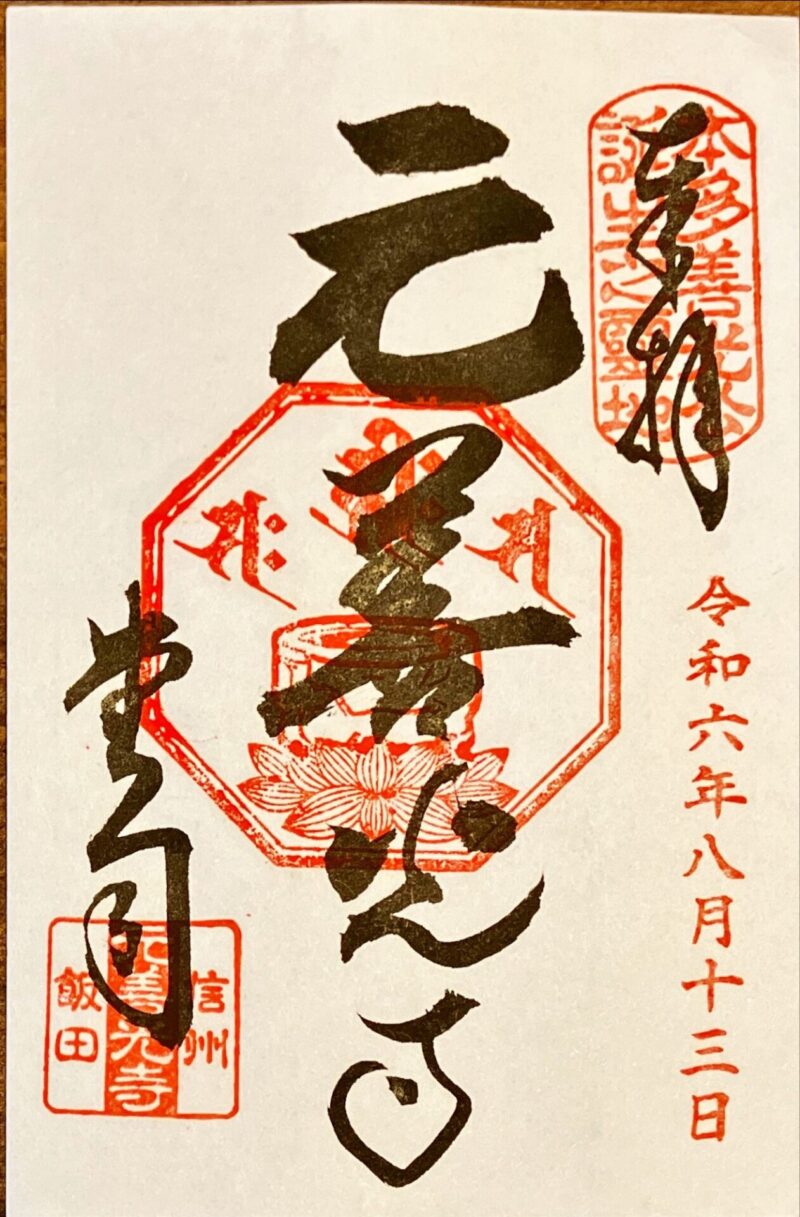 奉拝
本多善光公
誕生之霊地
令和六年八月十三日
元善光寺
堂司
信州
元善光寺
飯田